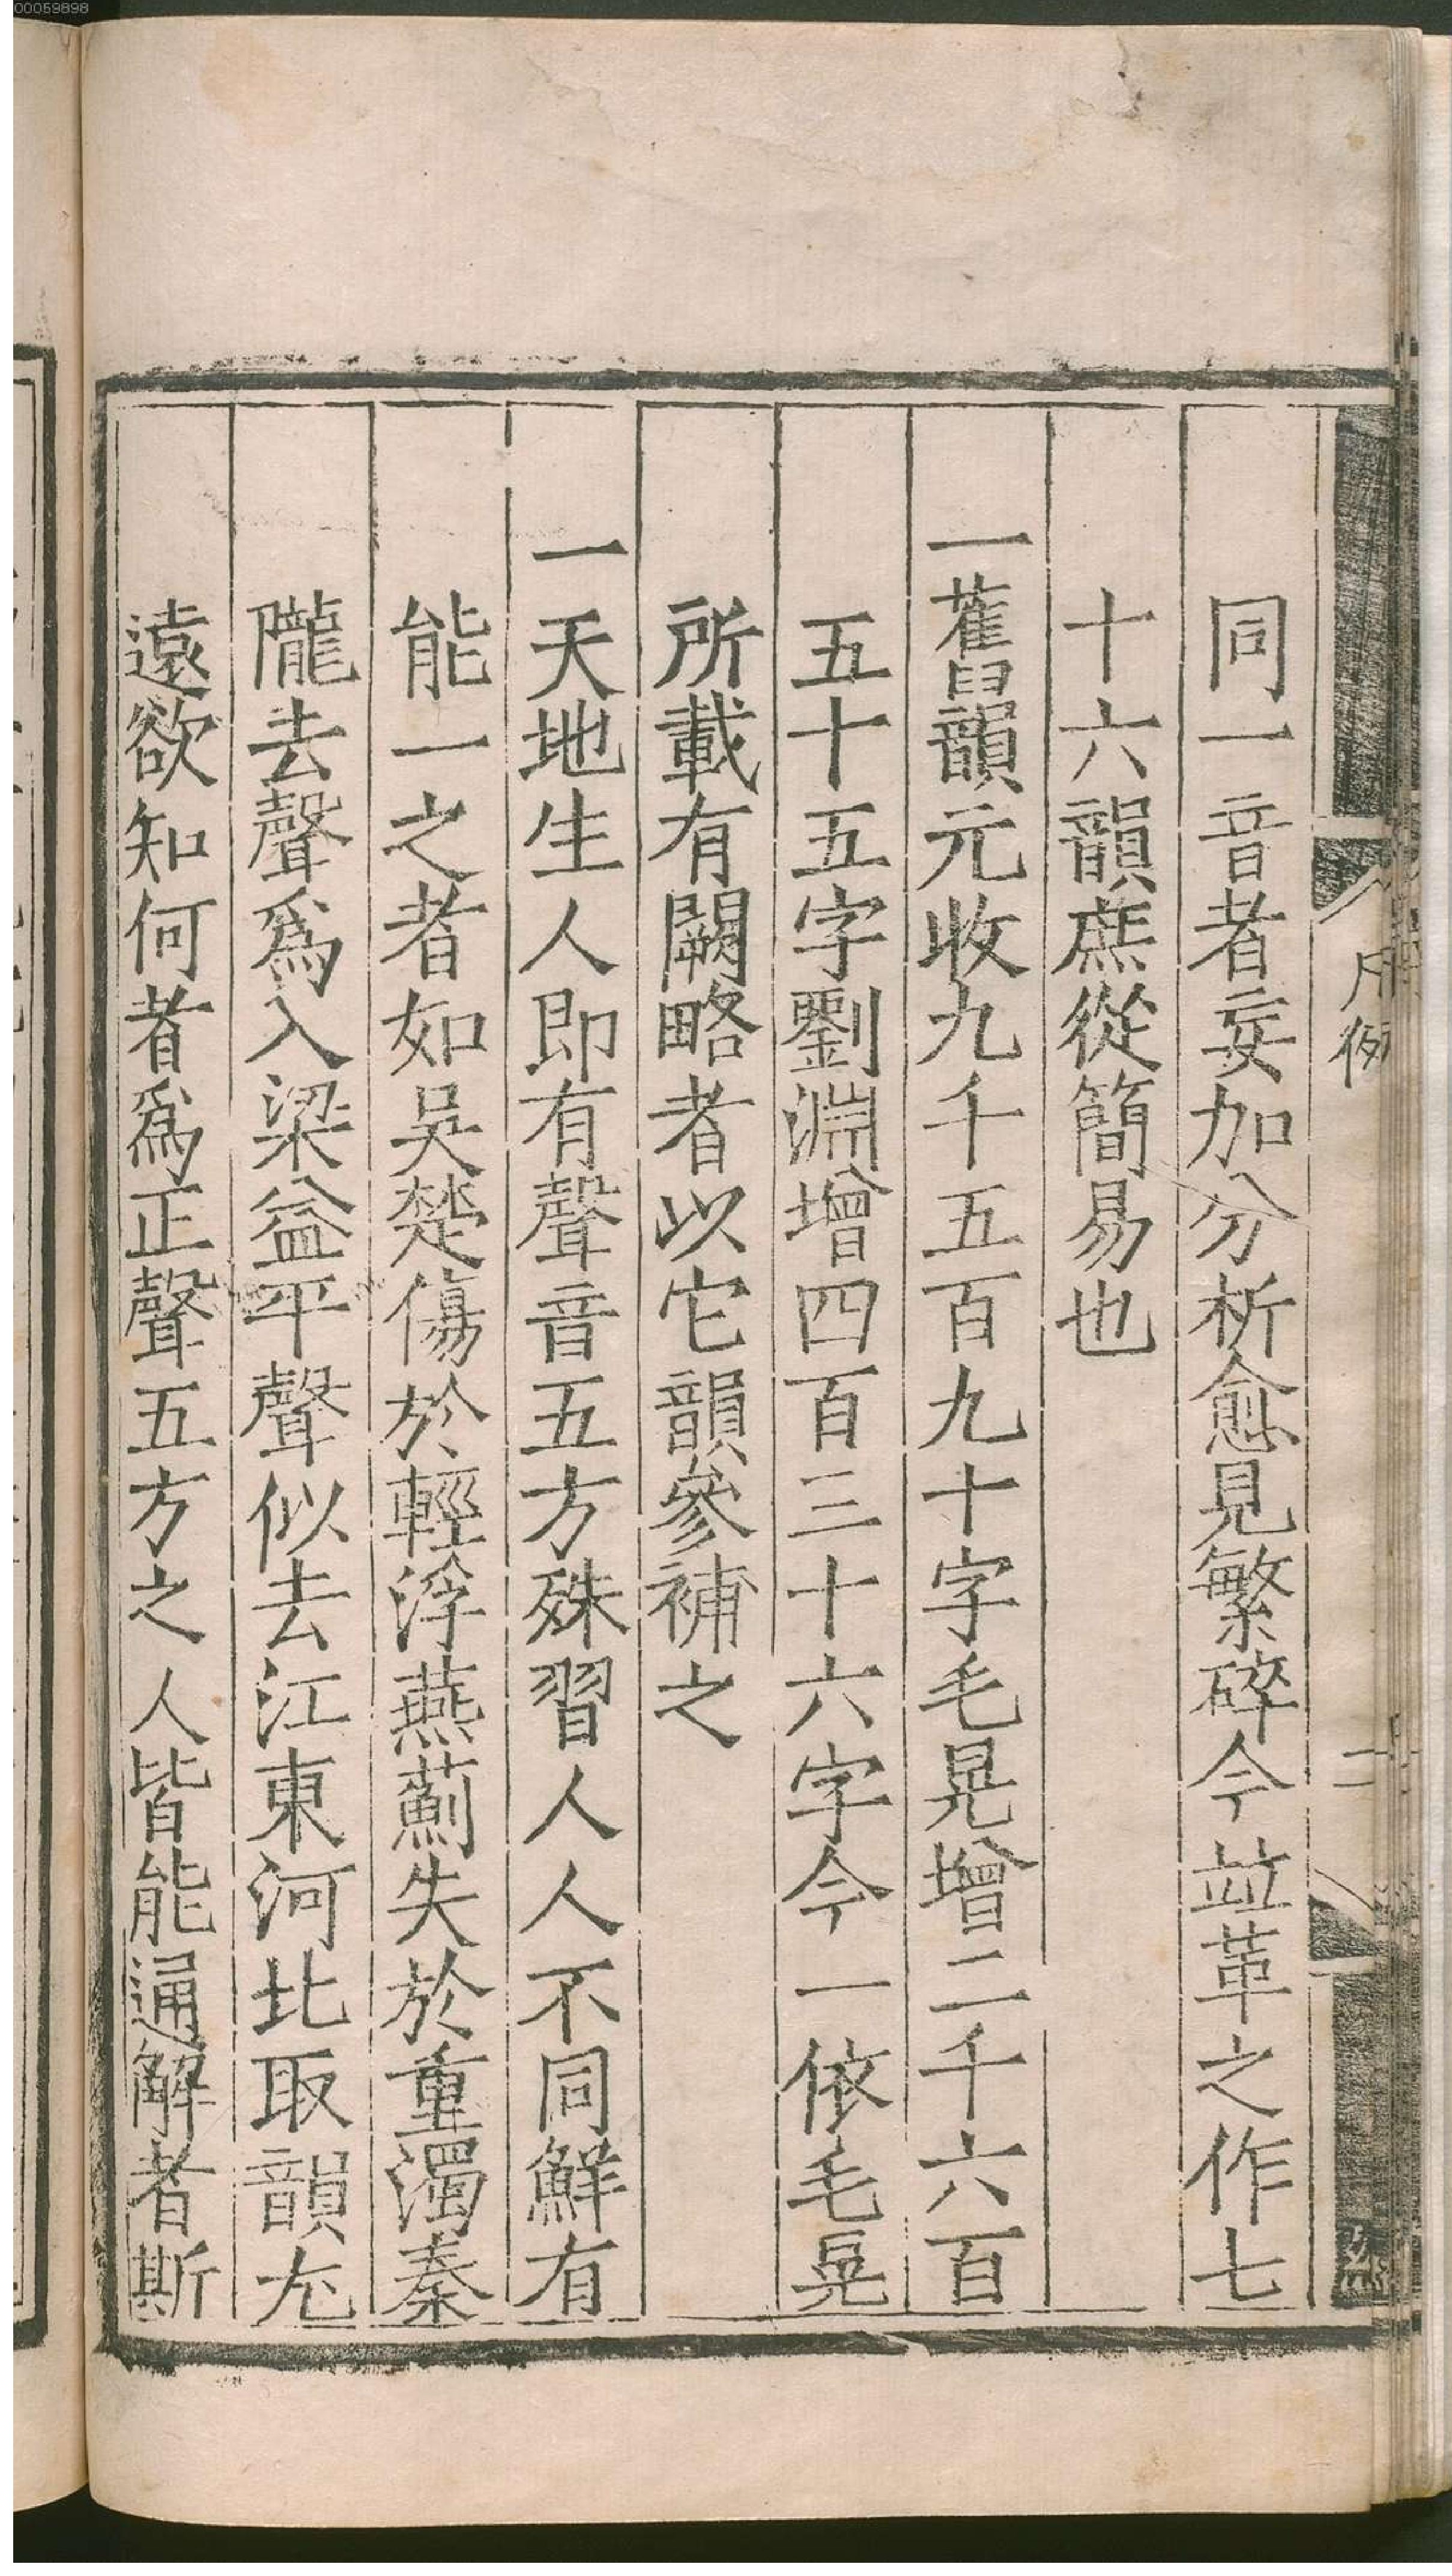 00059898
凡例
二
同一音者妄加分析愈見繁碎今竝革之作七
十六韻庶從簡易也
一舊韻元收九千五百九十字毛晃增二千六百
五十五字劉淵增四百三十六字今一依毛晃
所載有闕略者以它韻參補之
一天地生人即有聲音五方殊習人人不同鮮有
能一之者如吳楚傷於輕浮燕薊失於重濁秦
隴去聲爲入梁益平聲似去江東河北取韻尤
遠欲知何者爲正聲五方之人皆能通解者斯